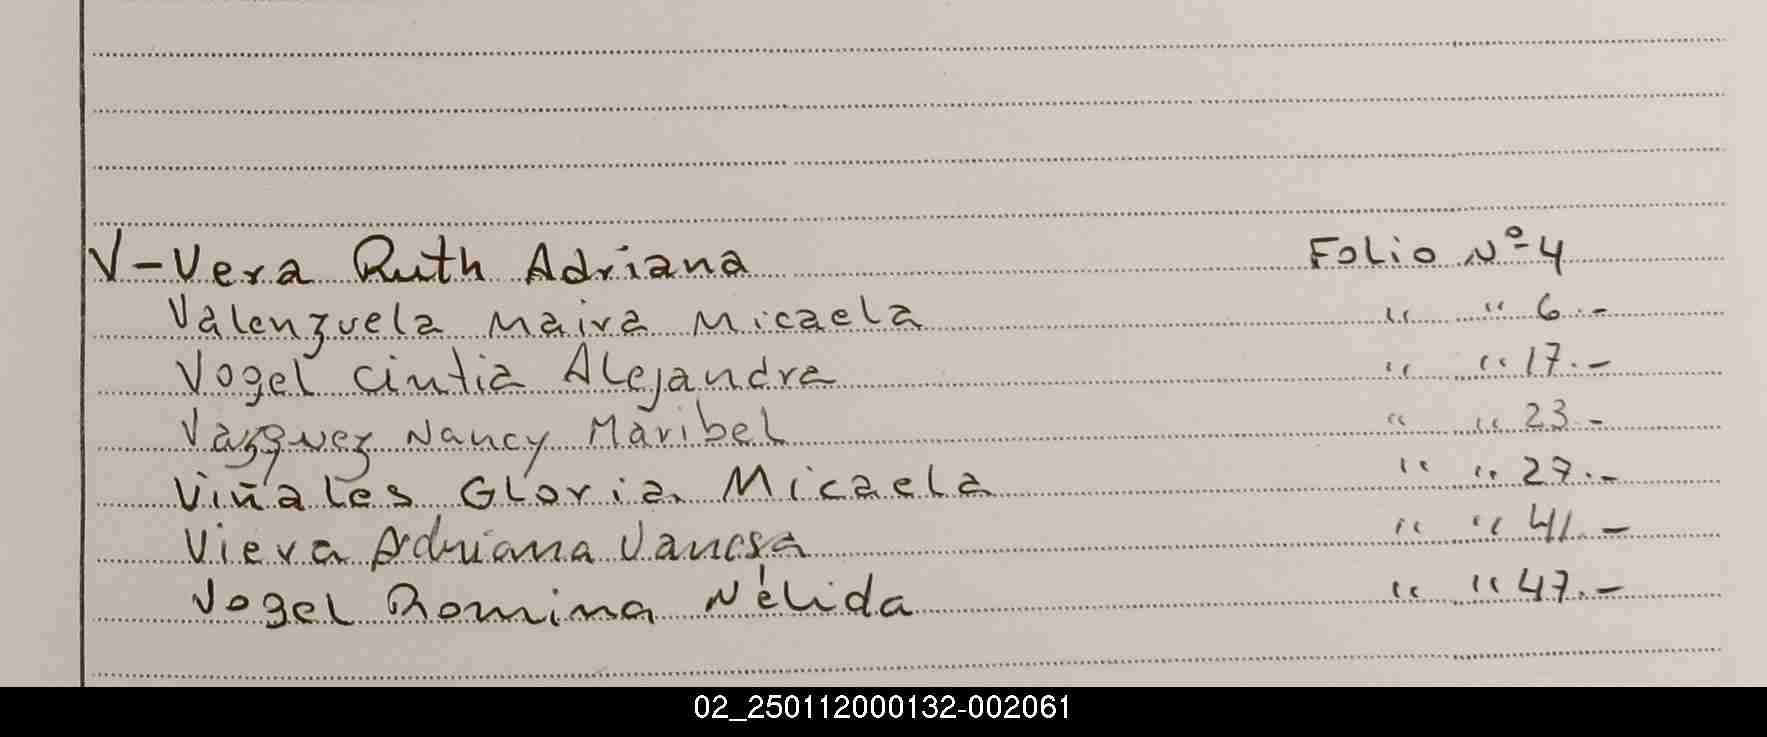 V-Vera Ruth Adriana Folio Nº-4
Valenzuela Maira Micaela " " 6.-
Vogel Cintia Alejandra " " 17.-
Vazquez Nancy Maribel " " 23-
Viñales Gloria Micaela " " 27.-
Viera Adriana Vanesa " " 41.-
Vogel Romina Nélida " " 47.-
02_250112000132-002061